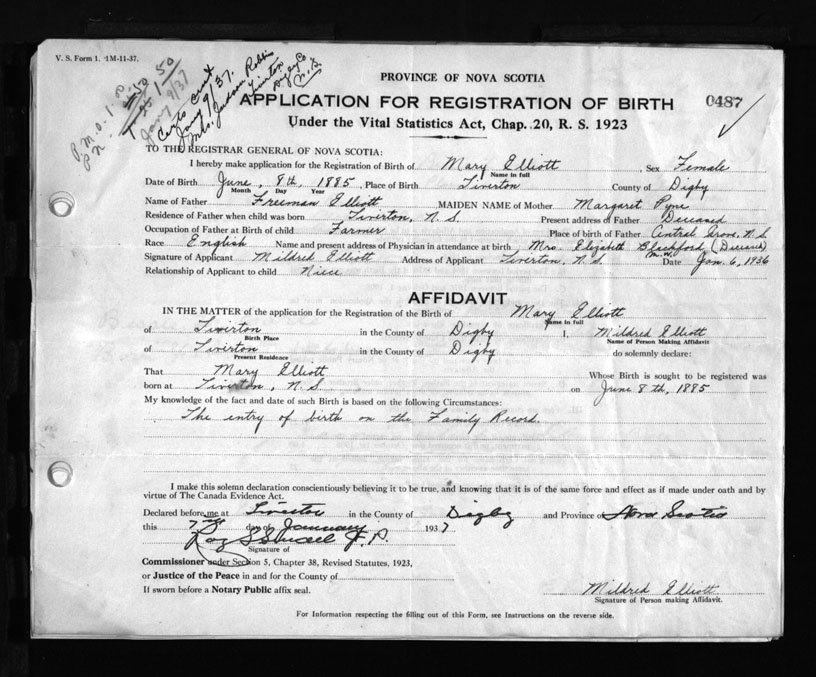 V. S. Form 1. 1M-11-37.
P.M.O. 1.50
1.50
Jany 9/37
Certs sent
Jany 9/37.
Mrs. Judson Robbins
Tiverton
Digby Co
N.S.
PROVINCE OF NOVA SCOTIA
APPLICATION FOR REGISTRATION OF BIRTH
0487
Under the Vital Statistics Act, Chap. 20, R. S. 1923
TO THE REGISTRAR GENERAL OF NOVA SCOTIA:
I hereby make application for the Registration of Birth of Mary Elliott, Sex Female
Name in full
Date of Birth June, 8th, 1885, Place of Birth Tiverton County of Digby
Month Day Year
Name of Father Freeman Elliott MAIDEN NAME of Mother Margaret Pyne
Residence of Father when child was born Tiverton, N.S. Present address of Father Deceased
Occupation of Father at Birth of child Farmer Place of birth of Father Central Grove, N.S
Race English Name and present address of Physician in attendance at birth Mrs. Elizabeth Blackford (Deceased)
M.W.
Signature of Applicant Mildred Elliott Address of Applicant Tiverton, N.S. Date Jan. 6, 1936
Relationship of Applicant to child Niece
AFFIDAVIT
IN THE MATTER of the application for the Registration of the Birth of Mary Elliott
Name in full
of Tiverton in the County of Digby I, Mildred Elliott
Birth Place Name of Person Making Affidavit
of Tiverton in the County of Digby do solemnly declare:
Present Residence
That Mary Elliott Whose Birth is sought to be registered was
born at Tiverton, N.S. on June 8th, 1885
My knowledge of the fact and date of such Birth is based on the following Circumstances:
The entry of birth on the Family Record.
I make this solemn declaration conscientiously believing it to be true, and knowing that it is of the same force and effect as if made under oath and by
virtue of The Canada Evidence Act.
Declared before me at Tiverton in the County of Digby and Province of Nova Scotia
this 7th day of January 1937
J.P.
Signature of
Commissioner under Section 5, Chapter 38, Revised Statutes, 1923,
or Justice of the Peace in and for the County of
If sworn before a Notary Public affix seal.
Mildred Elliott
Signature of Person making Affidavit.
For Information respecting the filling out of this Form, see Instructions on the reverse side.